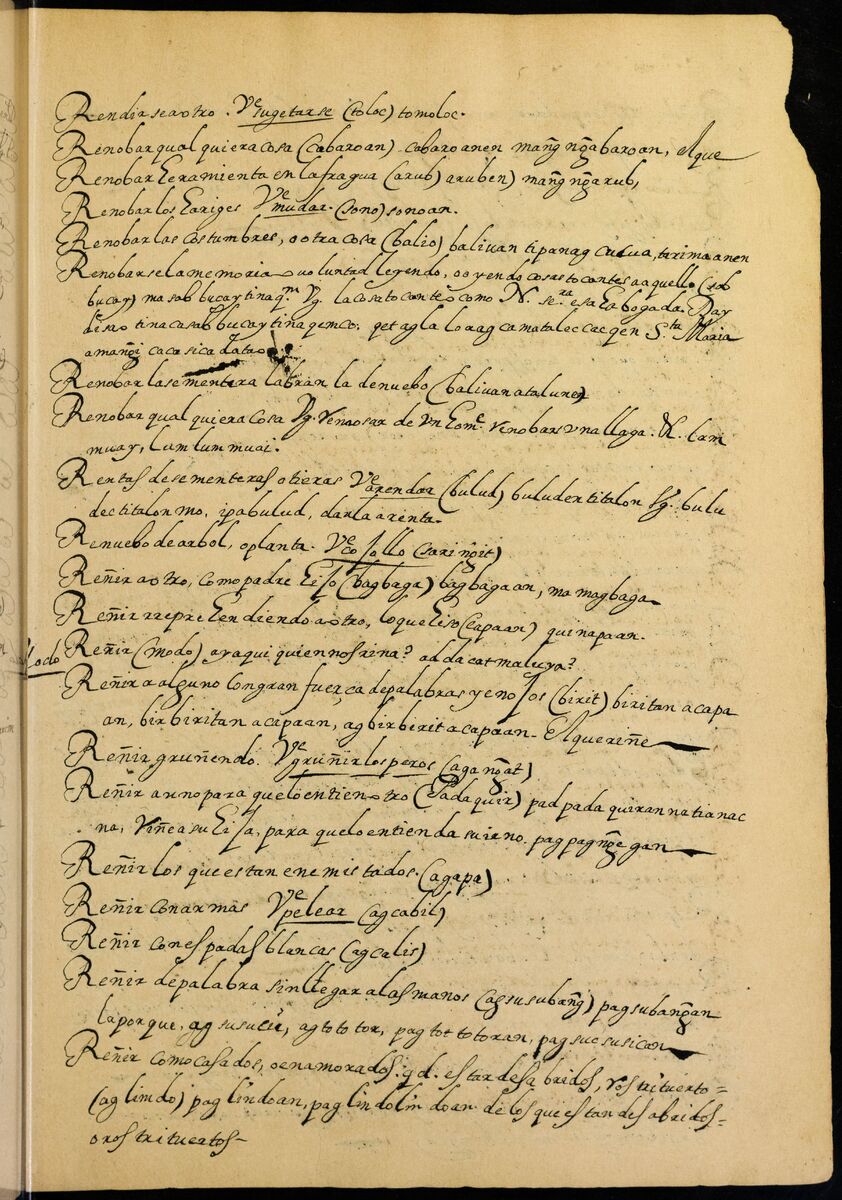 Rendirse a otro. Ve sugetarse (toloc) tomoloc.
Renobar qual quiera cosa (cabaroan) cabaroanen mang̃ ng̃abaroan, el que
Renobar heramienta en la fragua (arub) aruben) mang̃ ng̃arub,
Renobar los hariges Ve mudar. (sono) sonoan.
Renobar las costumbres, o otra cosa (balio) balivan ti panag cucua, tarimaanen
Renobarse la memoria o voluntad leyendo, o oyendo cosas tocantes a aquello (sob
bucay) ma sob bucay tinaqm. Vg. la cosa tocante como N. sera. es abogada. Day
diay tinacasob bucay tinaqemco: qet agla loaag camatalec cacqen Sta Maria
a mang̃i cacasica
Renobar la sementera labran la de nuebo (balivan a talunen)
Renobar qual quiera cosa Vg. de vn home. renobars vna llaga. &. lam
muay, lumlum muai.
Rentas de sementeras o tieras Ve arendar (bulud) buluden ti talon Vg. bulu
dec ti talon mo, ipabulud, darla a renta.
Renuebo de arbol, o planta. Ve cojollo (saring̃it)
Reñir a otro, como padre hijo (bagbaga) bagbagaan, mamagbaga
Reñir reprehendiendo a otro, lo que hiso (capaan) quinapaan.
Reñir (modo) ay aqui quien nos rina? adda cat maluya?
Reñir a alguno con gran fuerça de palabras y enojos (birit) biritan a capa
an, birbiritan a capaan, agbirbirit a capaan. El que riñe
Reñir gruñendo. Ve gruñir los peros (agang̃at)
Reñir a uno para que lo entien otro (Padaquir) padpadaquiran na ti anac
na, riñe a su hija, para que lo entienda su iano. pagpagng̃egan
Reñir los que estan enemistados. (agapa)
Reñir con armas Ve pelear (agcabil)
Reñir con espadas blancas (agcalis)
Reñir de palabra sin llegar a las manos (agsusubang̃) pagsubang̃an
la porque, ag susuic, agtototor, pagtottotoran, pagsuesuican
Reñir como casados, o enamorados. yd. estar desabridos, rostrituerto=
(aglindo) paglindoan, paglindolindoan. de los que estan desabridos=
o rostrituertos-